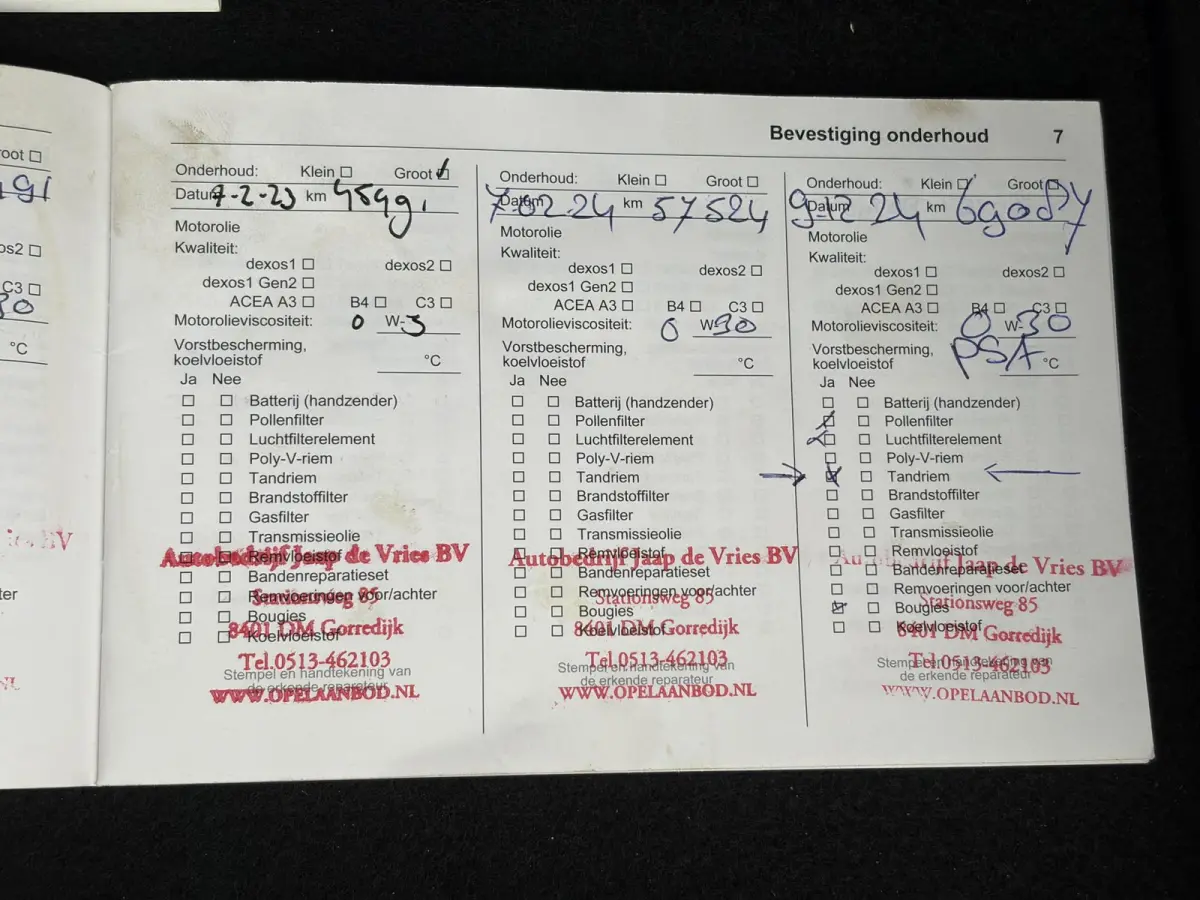 oot
os2
C3
30
°C
ter
NL
Bevestiging onderhoud 7
Onderhoud: Klein Groot
Datum 7-2-23 km 45991
Motorolie
Kwaliteit:
dexos1 dexos2
dexos1 Gen2
ACEA A3 B4 C3
Motorolieviscositeit: 0 W-3
Vorstbescherming,
koelvloeistof °C
Ja Nee
Batterij (handzender)
Pollenfilter
Luchtfilterelement
Poly-V-riem
Tandriem
Brandstoffilter
Gasfilter
Transmissieolie
Remvloeistof
Bandenreparatieset
Remvoeringen voor/achter
Bougies
Koelvloeistof
Stempel en handtekening van
de erkende reparateur
Autobedrijf Jaap de Vries BV
Stationsweg 85
8401 DM Gorredijk
Tel.0513-462103
WWW.OPELAANBOD.NL
Onderhoud: Klein Groot
Datum 7-02-24 km 57524
Motorolie
Kwaliteit:
dexos1 dexos2
dexos1 Gen2
ACEA A3 B4 C3
Motorolieviscositeit: 0 W-30
Vorstbescherming,
koelvloeistof °C
Ja Nee
Batterij (handzender)
Pollenfilter
Luchtfilterelement
Poly-V-riem
Tandriem
Brandstoffilter
Gasfilter
Transmissieolie
Remvloeistof
Bandenreparatieset
Remvoeringen voor/achter
Bougies
Koelvloeistof
Stempel en handtekening van
de erkende reparateur
Autobedrijf Jaap de Vries BV
Stationsweg 85
8401 DM Gorredijk
Tel.0513-462103
WWW.OPELAANBOD.NL
Onderhoud: Klein Groot
Datum 9-12 24 km
Motorolie
Kwaliteit:
dexos1 dexos2
dexos1 Gen2
ACEA A3 B4 C3
Motorolieviscositeit: 0 W-30
Vorstbescherming, PSA
koelvloeistof °C
Ja Nee
Batterij (handzender)
Pollenfilter
Luchtfilterelement
Poly-V-riem
Tandriem
Brandstoffilter
Gasfilter
Transmissieolie
Remvloeistof
Bandenreparatieset
Remvoeringen voor/achter
Bougies
Koelvloeistof
Stempel en handtekening van
de erkende reparateur
Autobedrijf Jaap de Vries BV
Stationsweg 85
8401 DM Gorredijk
Tel.0513-462103
WWW.OPELAANBOD.NL